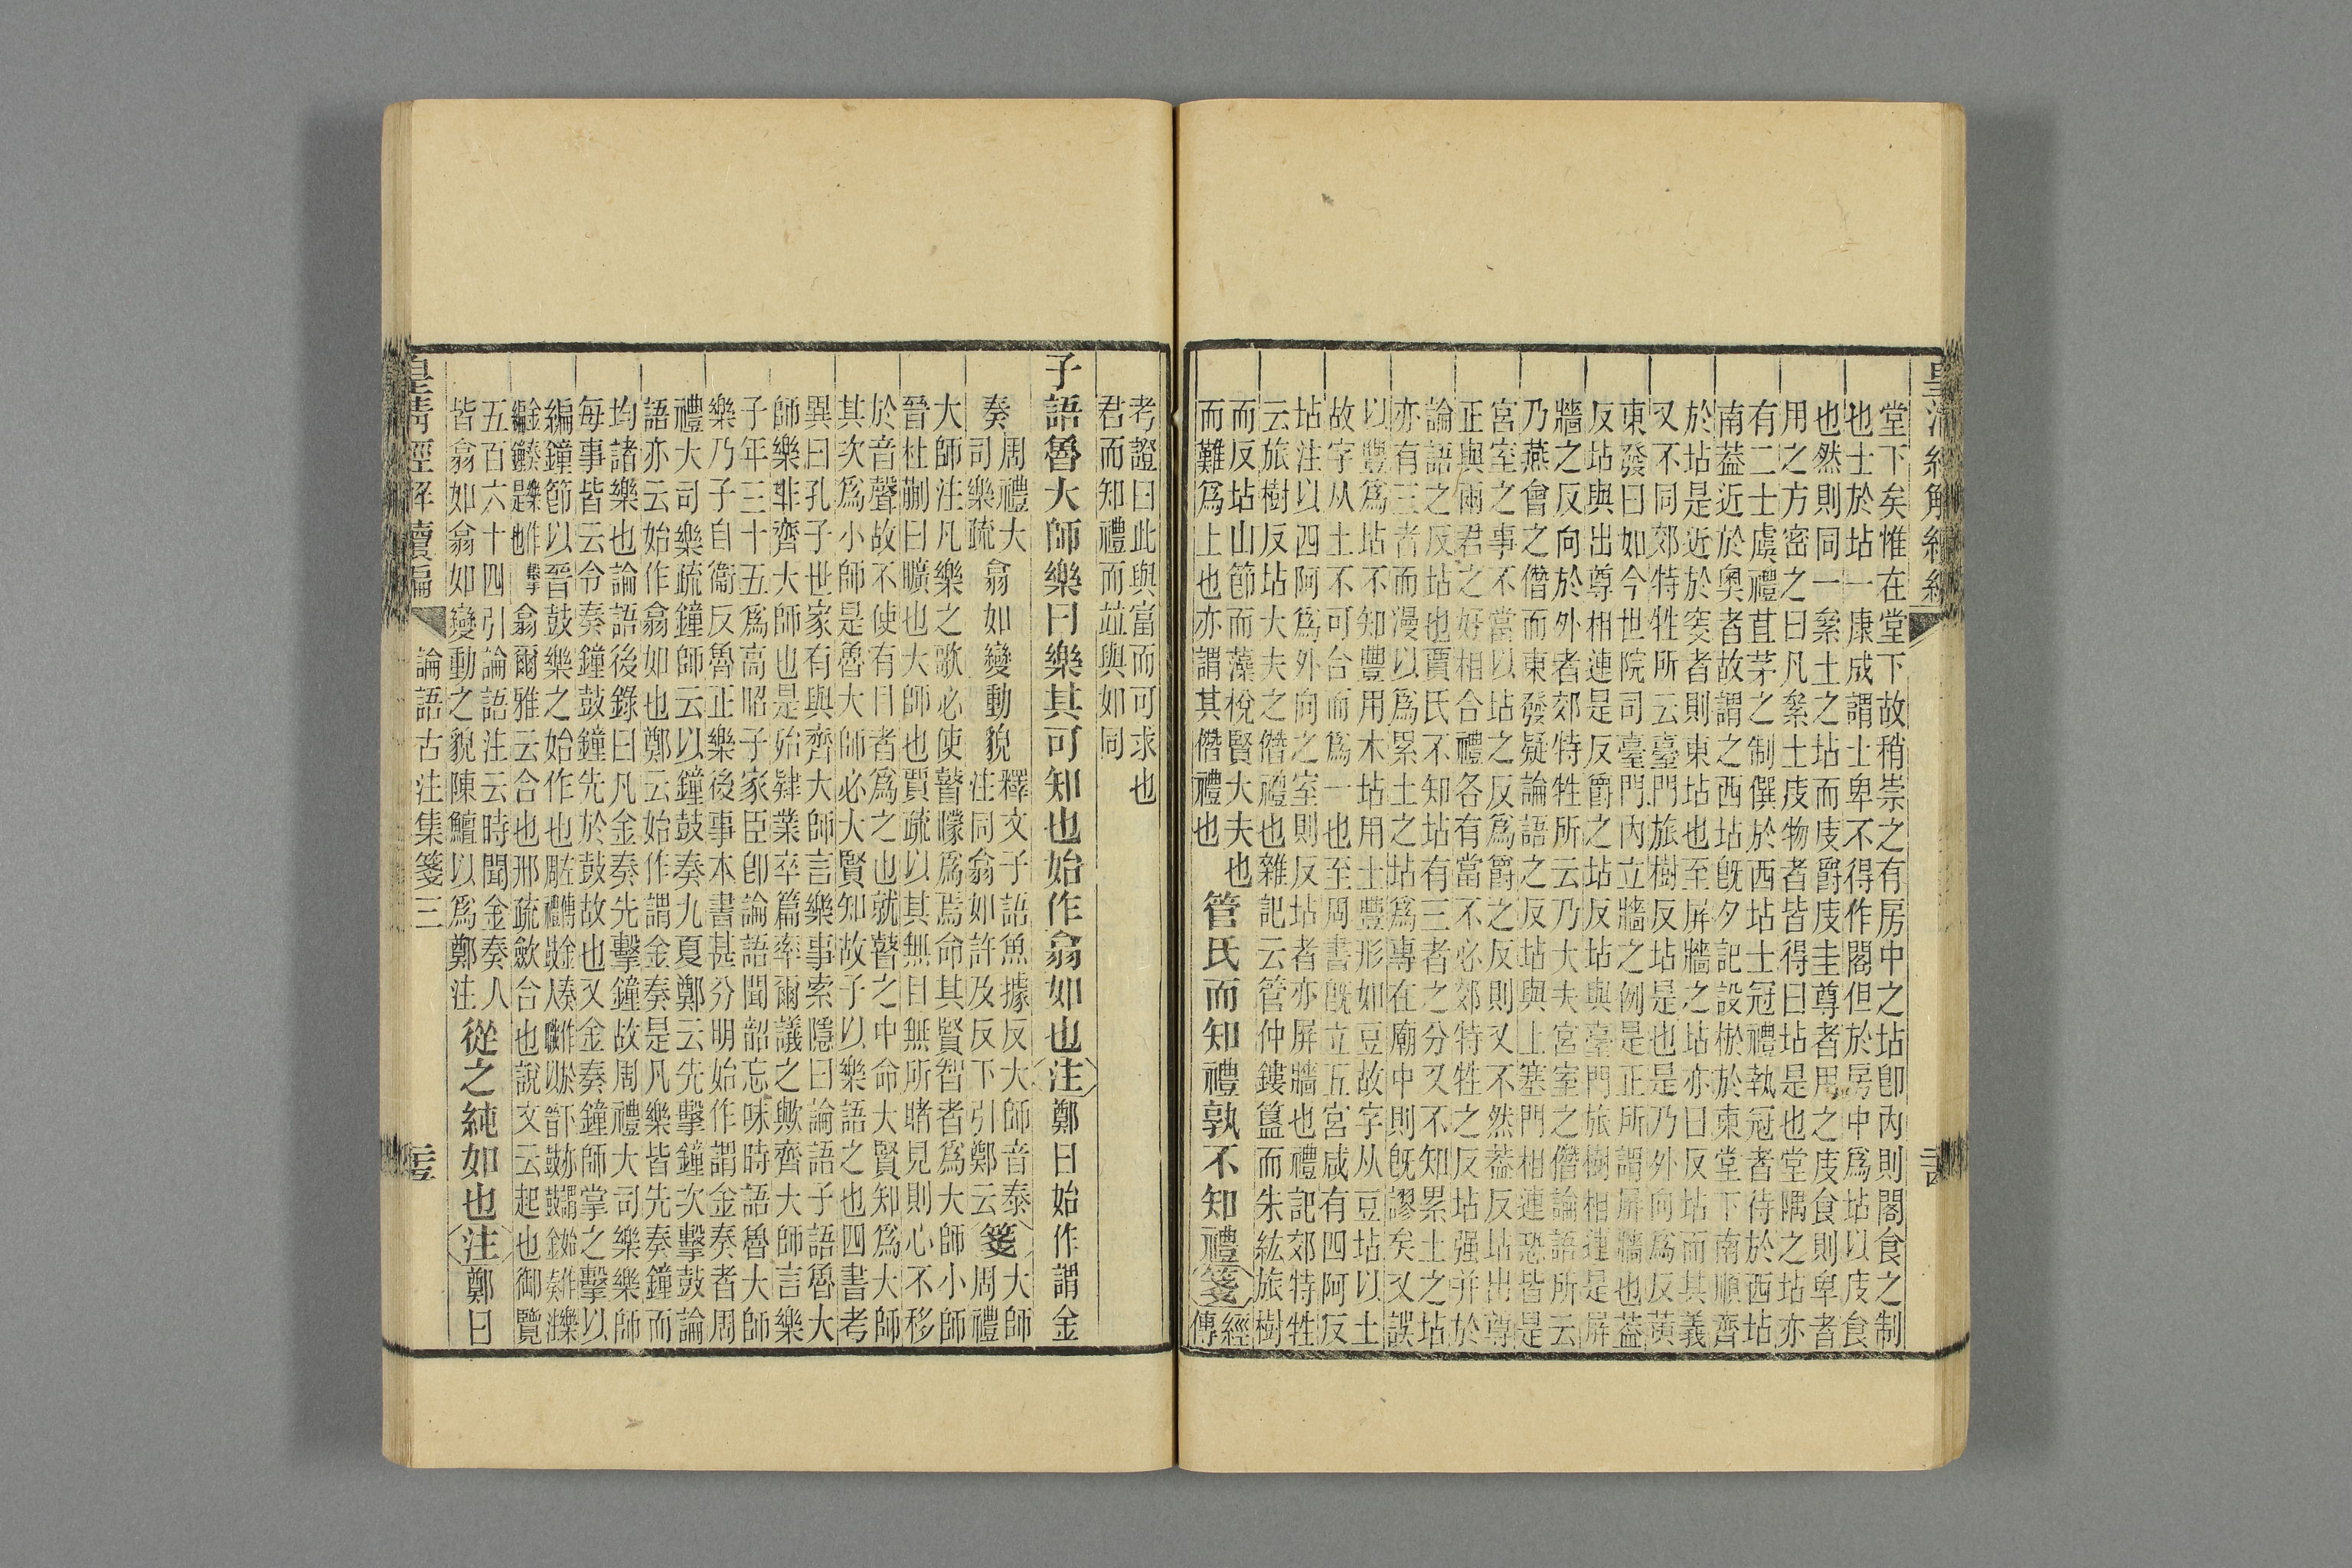 皇清經解續編
堂下矣惟在堂下故稍崇之有房中之坫卽內則閣食之制
也士於坫一康成謂士卑不得作閣但於房中爲坫以庋食
也然則同一絫土之坫而庋爵庋圭尊者用之庋食則卑者
用之方密之曰凡絫土庋物者皆得曰坫是也堂隅之坫亦
有二士虞禮苴茅之制僎於西坫士冠禮執冠者待於西坫
南葢近於奧者故謂之西坫旣夕記設棜於東堂下南順齊
於坫是近於窔者則東坫也至屏牆之坫亦曰反坫而其義
又不同郊特牲所云臺門旅樹反坫是也是乃外向爲反黃
東發曰如今世院司臺門內立牆之例是正所謂屏牆也葢
反坫與出尊相連是反爵之坫反坫與臺門旅樹相連是屏
牆之反向於外者郊特牲所云乃大夫宮室之僭論語所云
乃燕會之僭而東發疑論語之反坫與上塞門相連恐皆是
宮室之事不當以坫之反爲爵之反則又不然葢反坫出尊
正與兩君之好相合禮各有當不必郊特牲之反坫强幷於
論語之反坫也賈氏不知坫有三者之分又不知累土之坫
亦有三者而漫以爲累土之坫爲專在廟中則旣謬矣又誤
以豐爲坫不知豐用木坫用土豐形如豆故字从豆坫以土
故字从土不可合而爲一也至周書旣立五宮咸有四阿反
坫注以四阿爲外向之室則反坫者亦屏牆也禮記郊特牲
云旅樹反坫大夫之僭禮也雜記云管仲鏤簋而朱紘旅樹
而反坫山節而藻梲賢大夫也
而難爲上也亦謂其僭禮也
管氏而知禮孰不知禮箋經
傳
考證曰此與當而可求也
君而知禮而竝與如同
子語魯大師樂曰樂其可知也始作翕如也注鄭曰始作謂金
奏
周禮大
司樂疏
翕如變動貌
釋文子語魚據反大師音泰
注同翕如許及反下引鄭云
箋大師
周禮
大師注凡樂之歌必使瞽矇爲焉命其賢智者爲大師小師
晉杜蒯曰曠也大師也賈疏以其無目無所睹見則心不移
於音聲故不使有目者爲之也就瞽之中命大賢知爲大師
其次爲小師是魯大師必大賢知故子以樂語之也四書考
異曰孔子世家有與齊大師言樂事索隱曰論語子語魯大
師樂非齊大師也是殆肄業卒篇率爾議之歟齊大師言樂
子年三十五爲高昭子家臣卽論語聞韶忘味時語魯大師
樂乃子自衞反魯正樂後事本書甚分明始作謂金奏者周
禮大司樂疏鐘師云以鐘鼓奏九夏鄭云先擊鐘次擊鼓論
語亦云始作翕如也鄭云始作謂金奏是凡樂皆先奏鐘而
均諸樂也論語後錄曰凡金奏先擊鐘故周禮大司樂樂師
每事皆云令奏鐘鼓鐘先於鼓故也又金奏鐘師掌之擊以
編鐘節以晉鼓樂之始作也
翕爾雅云合也邢疏歛合也說文云起也御覽
五百六十四引論語注云時聞金奏人
皆翕如翕如變動之貌陳鱣以爲鄭注
從之純如也注鄭曰
皇淸經解續編
論語古注集箋三